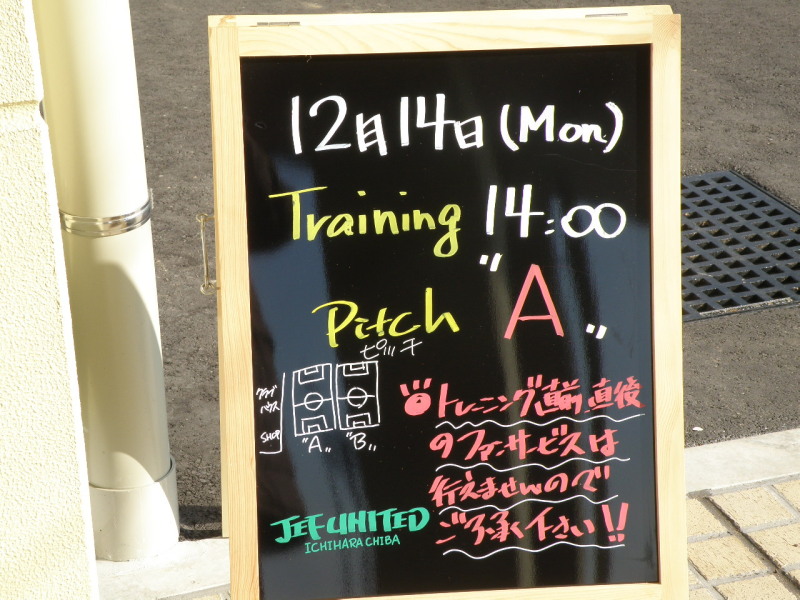 12月14日 (Mon)
Training 14:00
Pitch "A"
ピッチ
クラブ
ハウス
SHOP
"A" "B"
トレーニング直前、直後
のファンサービスは
行えませんので
ご了承下さい!!
JEF UNITED
ICHIHARA CHIBA